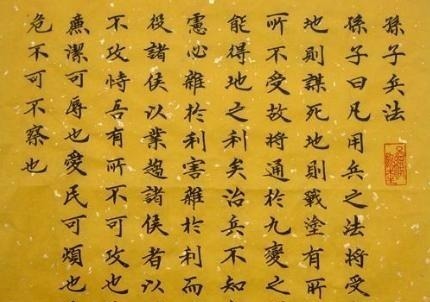 孫子兵法
孫子曰凡用兵之法將受
地則謀死地則戰塗有所
所不受故將通於九變之
能得地之利矣治兵不知
慮必雜於利害雜於利而
役諸侯以業趨諸侯者以
不攻恃吾有所不可攻也
廉潔可辱也愛民可煩也
危不可不察也